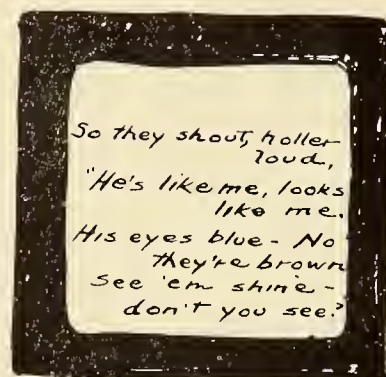 So they shout, holler
loud,
"He's like me, looks
like me.
His eyes blue - No
they're brown
See 'em shine -
don't you see."